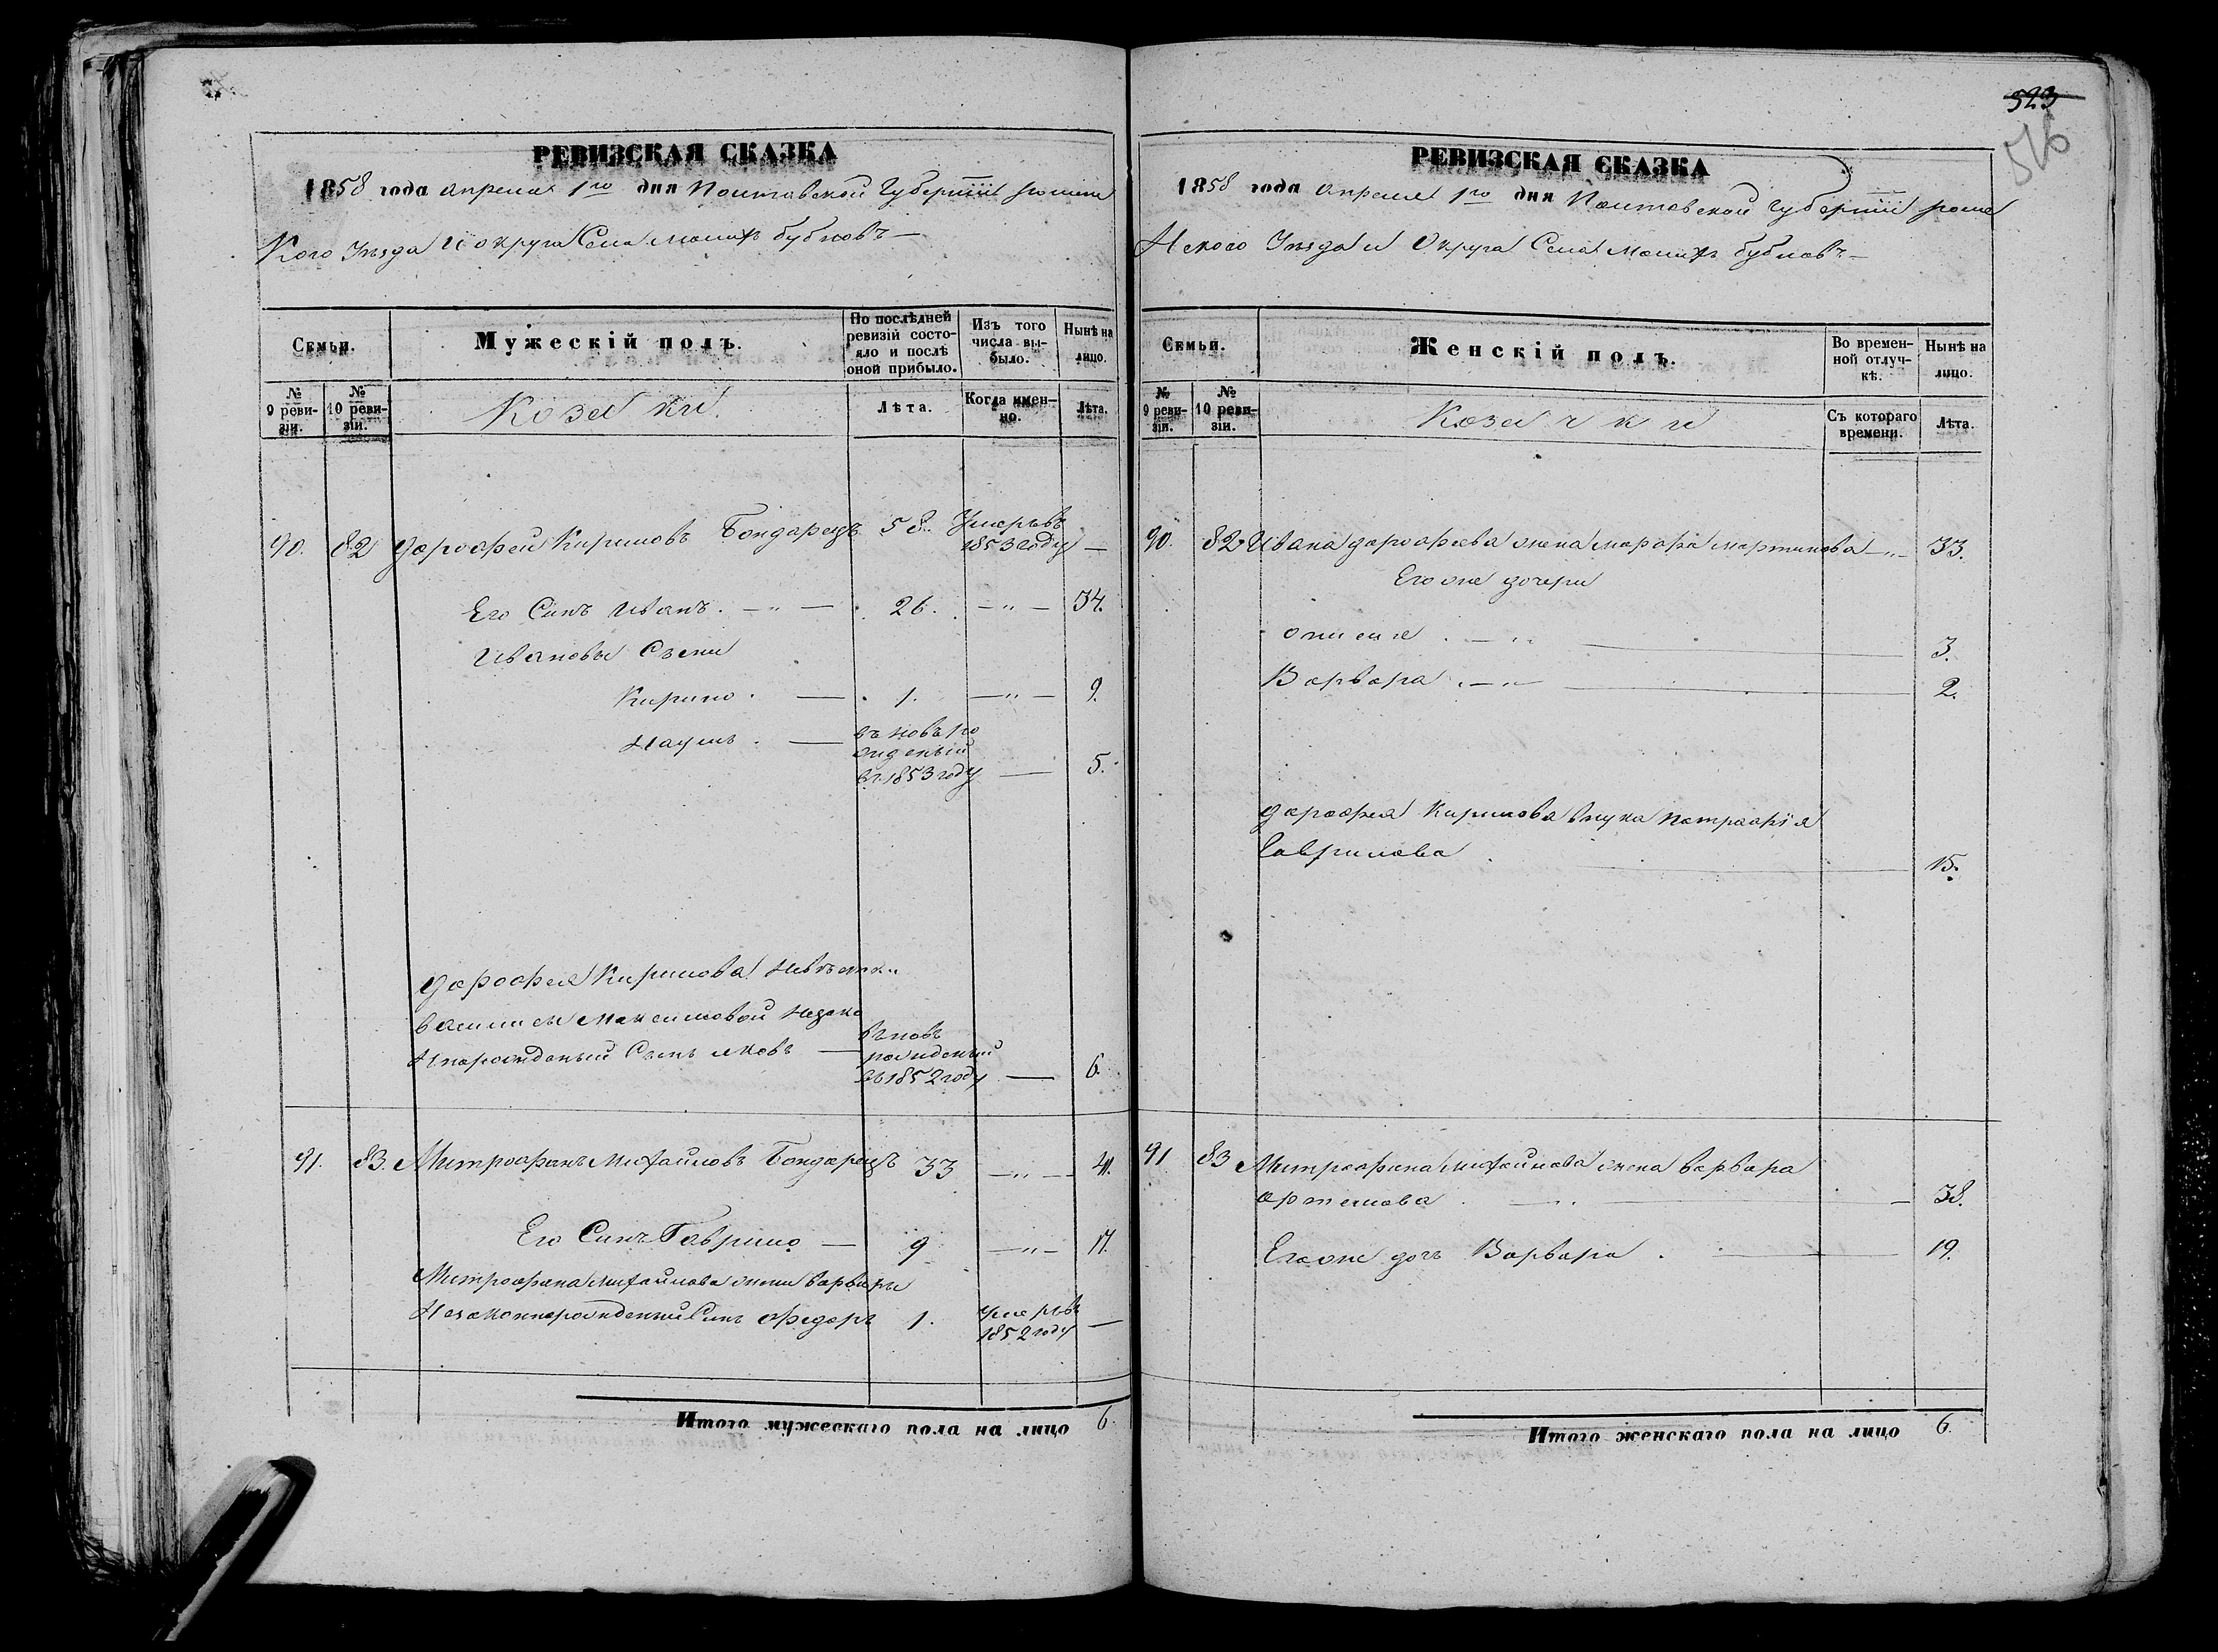 РЕВИЗСКАЯ СКАЗКА
1858 года апреля 1го дня Полтавской Губернiи ромен
Кого Уѣзда и округа Села Малихъ бубновъ —
Семьи.
Мужескiй полъ.
По послѣдней ревизiй состояло и послѣ оной прибыло.
Изъ того числа выбыло.
Нынѣ на лицо.
№ 9 ревизiи.
№ 10 ревизiи.
Козаки.
Лѣта.
Когда именно.
Лѣта.
90. 82 Дорофей Кириловъ Бондарецъ 58. Умерътъ 1853 году —
Его Синъ Иванъ. — " — 26. — " — 34.
Ивановы Съени
Кирило. — 1. — " — 9.
Наумъ. — въ новъ ро
жденый
въ 1853 году — 5.
Дорофея Кирилова невѣстки
василисы Максимовой незако
Норожденый Сынъ яковъ — въновъ
рожденый
въ 1852 году — 6.
91. 83. Митрофанъ Михайловъ Бондарецъ 33 — " — 41.
Его Синъ Гаврило — 9 — " — 17.
Митрофана Михайлова жени варвары
Незаконнорожденый Синъ Федоръ 1. Умерътъ 1852 году —
Итого мужескаго пола на лицо 6.
523
516
РЕВИЗСКАЯ СКАЗКА
1858 года апреля 1го дня Полтавской Губернiи роме
Нского Уѣзда и Округа Села Малихъ бубновъ —
Семьи.
Женскiй полъ.
Во временной отлучкѣ.
Нынѣ на лицо.
№ 9 ревизiи.
№ 10 ревизiи.
Козачки
Съ котораго времени.
Лѣта.
90. 82 Ивана дорофеева жена марфа мартинова — " — 33.
Его же дочери
опились . — " 3.
Варвара . — " — 2.
Дорофея Кирилова внука Патрафiя
Гаврилова 15.
91 83 Митрофана михайлова жена варвара
артемова . — 38.
Его же дочъ Варвара . — 19.
Итого женскаго пола на лицо 6.